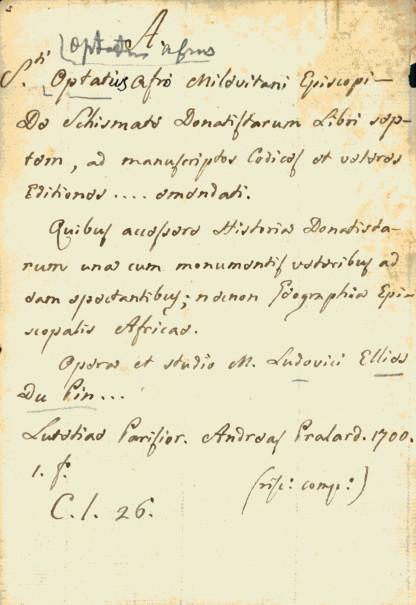 A
Optatus Afrus
S.ti Optatius Afro Milevitani Episcopi
De Schismate Donatistarum Libri sep-
tem, ad manuscriptos Codices et veteres
Editiones .... emendati.
Quibus accessere Historia Donatista-
rum una cum monumentis veteribus ad
eam spectantibus; necnon Geographia Epi-
scopalis Africae.
Opera et studio M. Ludovici Ellies
Du Pin...
Lutetiae Parisior. Andreas Pralard. 1700.
1. f.
(risc: comp:)
C. 1. 26.